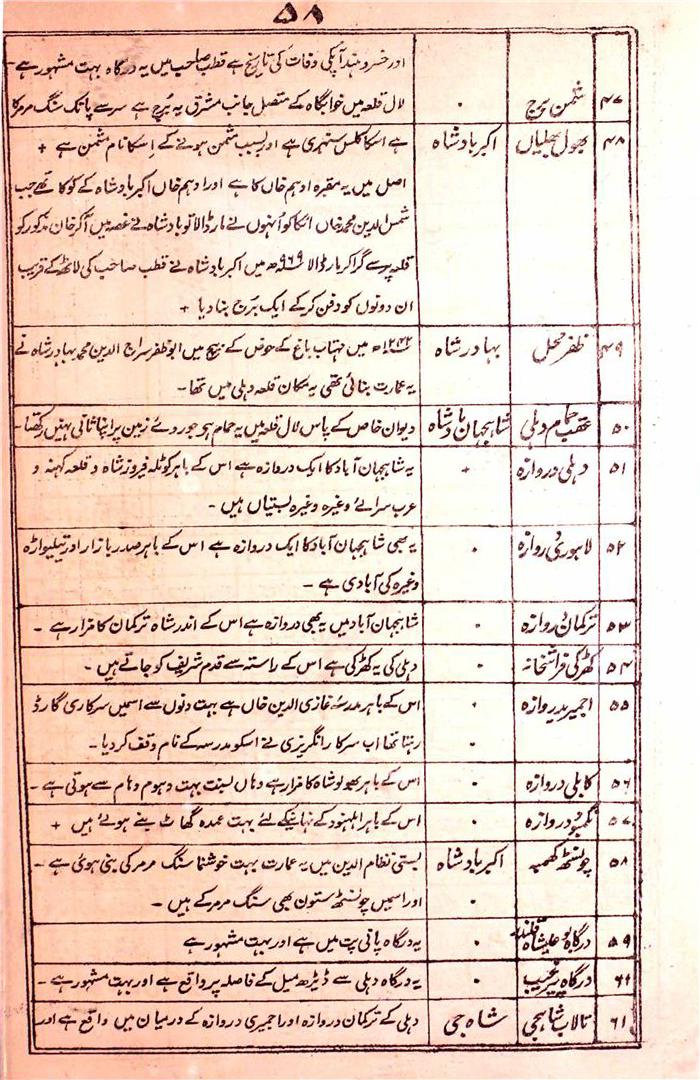 ۵۸
اور خسرو ہند آپکی وفات کی تاریخ ہے قطب صاحب میں یہ درگاہ بہت مشہور ہے۔
۴۷ شمن برج ۰ لال قلعہ میں خوابگاہ کے متصل جانب مشرق یہ برج ہے سرسے پا تک سنگ مرمر کا
ہے اسکا کلس سنہری ہے اور بسبب شمن ہونے کے اسکا نام شمن ہے +
۴۸ بھول بھلیاں اکبر بادشاہ
اصل میں یہ مقبرہ ادہم خاں کا ہے اور ادہم خاں اکبر بادشاہ کے کوکا تھے جب
شمس الدین محمد خاں اتکا کو اُنہوں نے مار ڈالا تو بادشاہ نے غصہ میں آکر خان مذکور کو
قلعہ پر سے گرا کر مار ڈالا ۹۶۹ھ میں اکبر بادشاہ نے قطب صاحب کی لاٹھ کے قریب
ان دونوں کو دفن کر کے ایک برج بنا دیا +
۴۹ ظفر محل بہادر شاہ ۱۲۴۲ھ میں مہتاب باغ کے حوض کے بیچ میں ابوظفر سراج الدین محمد بہادر شاہ نے
یہ عمارت بنائی تھی یہ مکان قلعہ دہلی میں تھا۔
۵۰ عقب حمام دہلی شاہجہان بادشاہ دیوان خاص کے پاس لال قلعہ میں یہ حمام ہے جو روئے زمین پر اپنا ثانی نہیں رکھتا۔
۵۱ دہلی دروازہ + یہ شاہجہان آباد کا ایک دروازہ ہے اس کے باہر کوٹلہ فیروز شاہ و قلعہ کہنہ و
عرب سرائے وغیرہ وغیرہ بستیاں ہیں۔
۵۲ لاہوری دروازہ ۰ یہ بھی شاہجہان آباد کا ایک دروازہ ہے اس کے باہر صدر بازار اور تیلیواڑہ
وغیرہ کی آبادی ہے۔
۵۳ ترکمان دروازہ ۰ شاہجہان آباد میں یہ بھی دروازہ ہے اس کے اندر شاہ ترکمان کا مزار ہے۔
۵۴ کھڑکی فراشخانہ ۰ دہلی کی یہ کھڑکی ہے اس کے راستہ سے قدم شریف کو جاتے ہیں۔
۵۵ اجمیری دروازہ ۰ اس کے باہر مدرسہ غازی الدین خاں ہے بہت دنوں سے اسمیں سرکاری گارڈ
۰ رہتا تھا اب سرکار انگریزی نے اسکو مدرسہ کے نام وقف کر دیا۔
۵۶ کابلی دروازہ ۰ اس کے باہر بھولو شاہ کا مزار ہے وہاں بسنت بہت دہوم دہام سے ہوتی ہے۔
۵۷ نگمبود دروازہ ۰ اس کے باہر اہل ہنود کے نہانیکے لئے بہت عمدہ گھاٹ بنے ہوئے ہیں +
۵۸ چونسٹھ کھمبہ اکبر بادشاہ بستی نظام الدین میں یہ عمارت بہت خوشنما سنگ مرمر کی بنی ہوئی ہے۔
۰ اور اسمیں چونسٹھ ستون بھی سنگ مرمر کے ہیں۔
۵۹ درگاہ بوعلیشاہ قلندر ۰ یہ درگاہ پانی پت میں ہے اور بہت مشہور ہے
درگاہ پیر غیب ۰ یہ درگاہ دہلی سے ڈیڑھ میل کے فاصلہ پر واقع ہے اور بہت مشہور ہے۔
۶۱ تالاب شاہجی شاہ جی دہلی کے ترکمان دروازہ اور اجمیری دروازہ کے درمیان میں واقع ہے اور